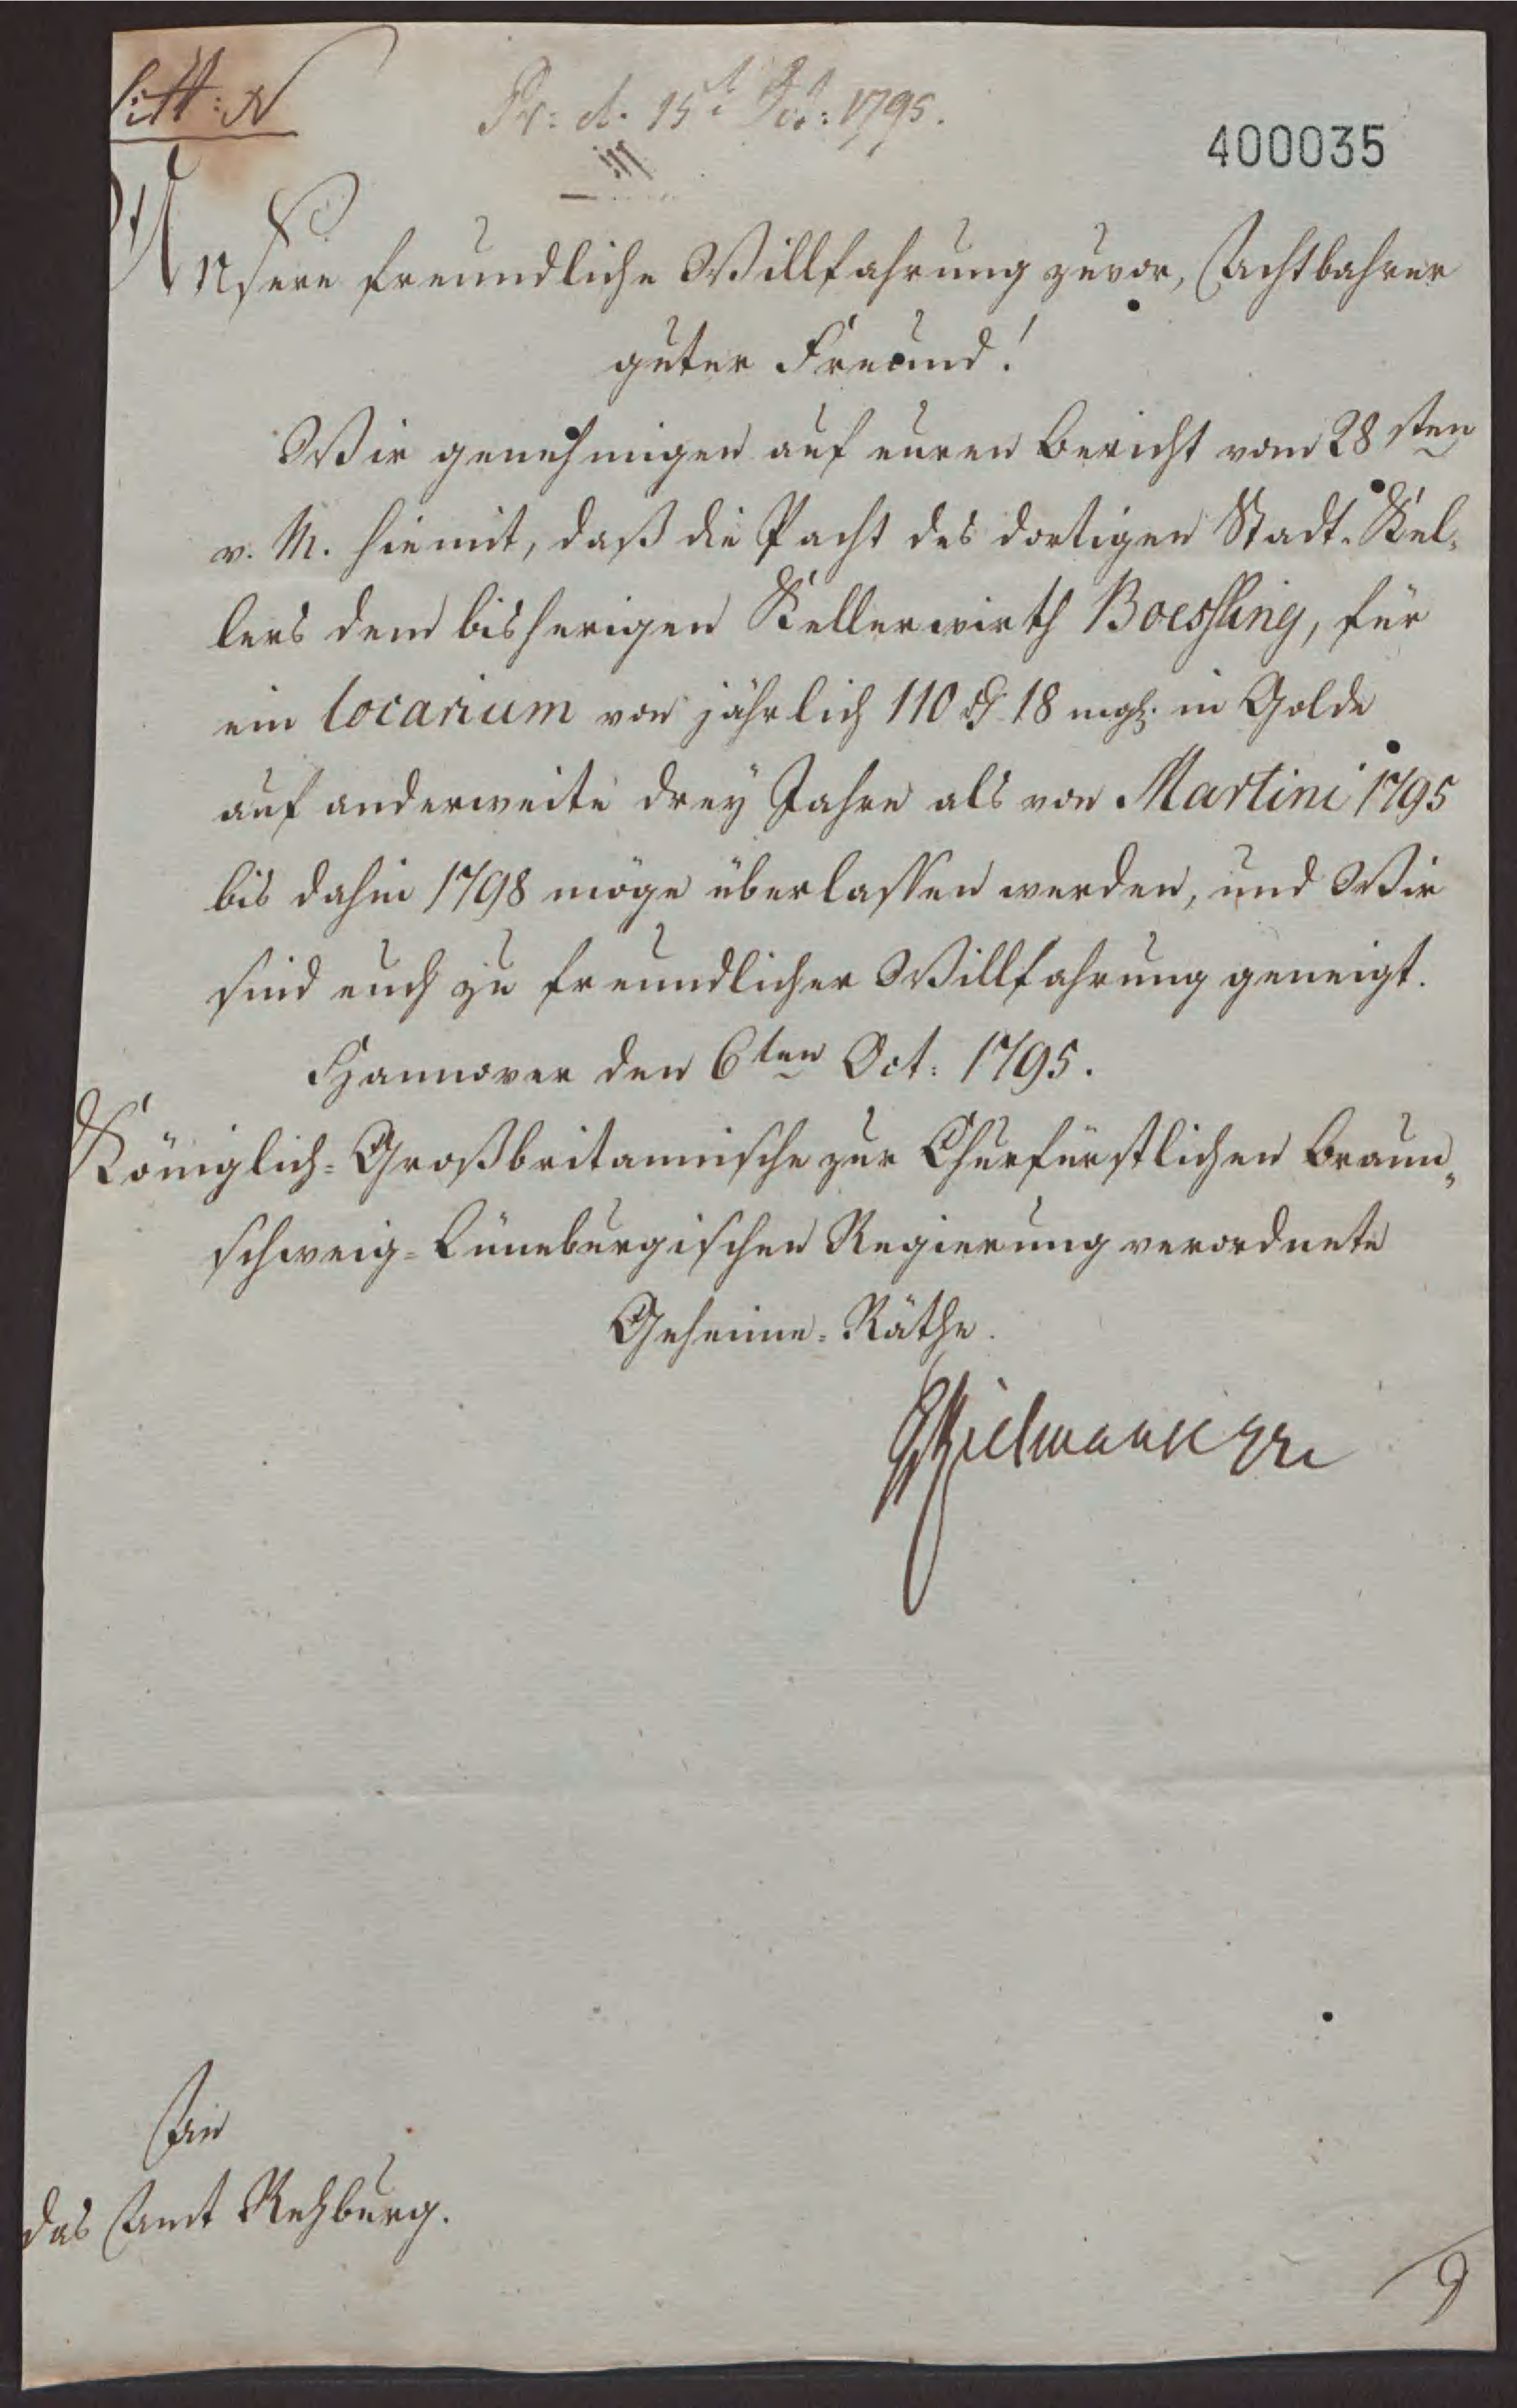 Litt: N
Pr: d. 15t Oct: 1795.
400035
Unsere freundliche Willfahrung zuvor, Achtbahrer
guter Freund!
Wir genehmigen auf euren Bericht vom 28sten
v. M. hiemit, daß die Pacht des dortigen Stadt-Kel-
lers dem bisherigen Kellerwirth Boessling, für
ein locarium von jährlich 110 rthl 18 mgl. in Golde
auf anderweite drey Jahre als von Martini 1795
bis dahin 1798 möge überlassen werden, und Wir
sind euch zu freundlicher Willfahrung geneigt.
Hannover den 6ten Oct: 1795.
Königlich-Großbritannische zur Churfürstlichen Braun-
schweig-Lüneburgischen Regierung verordnete
Geheime-Räthe.
Kielmansegge
An
das Amt Rehburg.
9